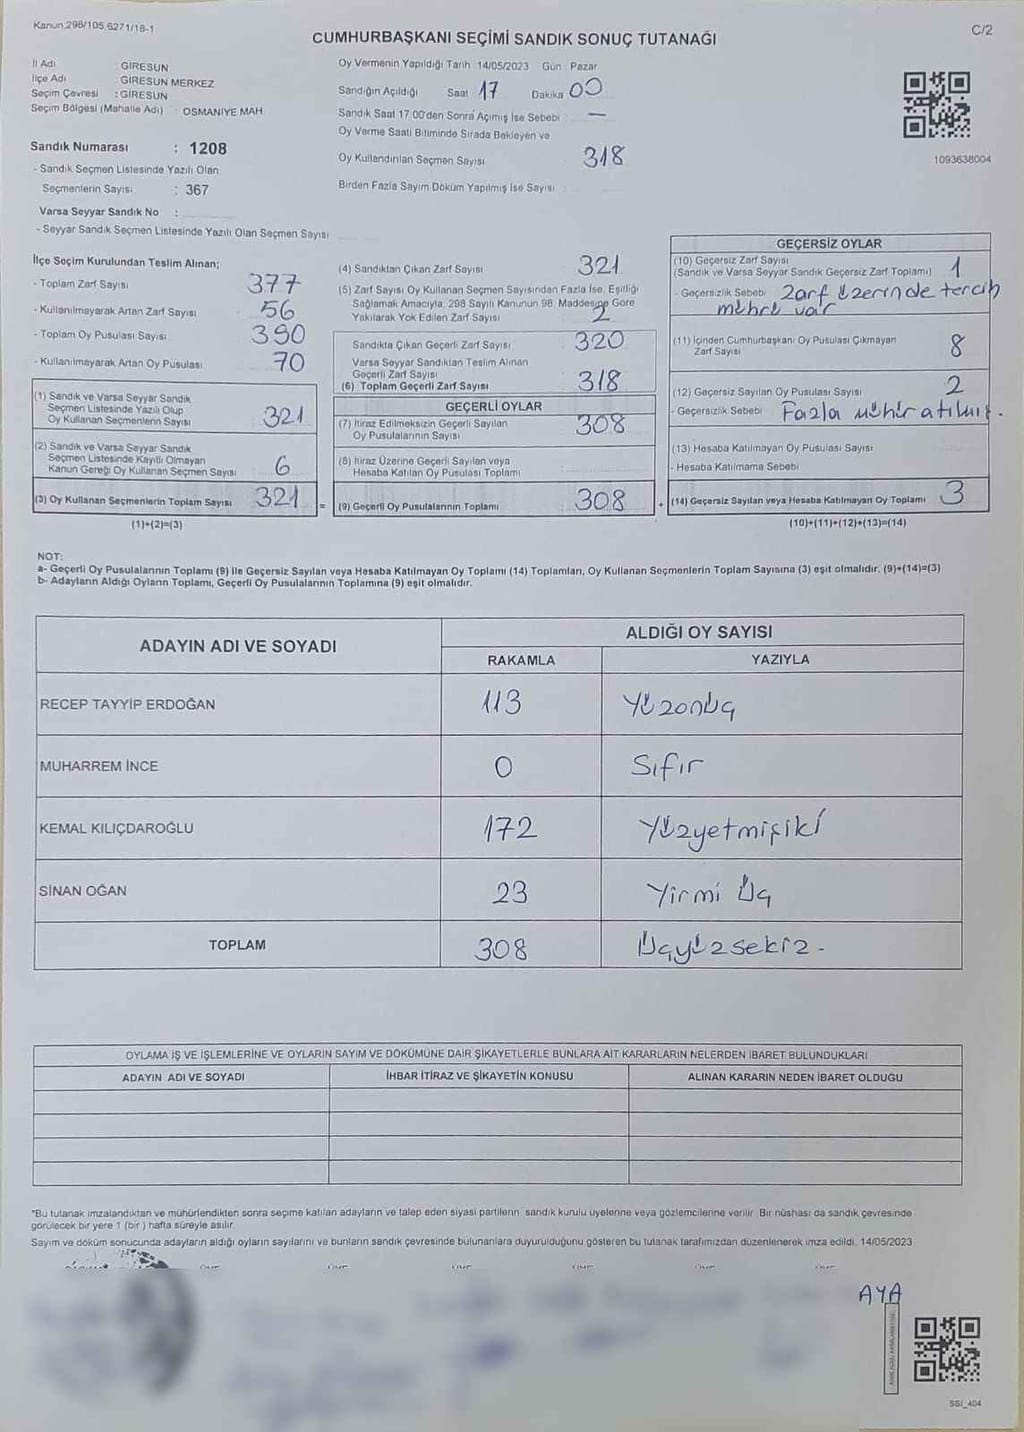 Kanun 298/105,6271/18-1
C/2
CUMHURBAŞKANI SEÇİMİ SANDIK SONUÇ TUTANAĞI
İl Adı : GİRESUN
İlçe Adı : GİRESUN MERKEZ
Seçim Çevresi : GİRESUN
Seçim Bölgesi (Mahalle Adı) : OSMANİYE MAH
Sandık Numarası : 1208
- Sandık Seçmen Listesinde Yazılı Olan
Seçmenlerin Sayısı : 367
Varsa Seyyar Sandık No :
- Seyyar Sandık Seçmen Listesinde Yazılı Olan Seçmen Sayısı
Oy Vermenin Yapıldığı Tarih 14/05/2023 Gün : Pazar
Sandığın Açıldığı Saat 17 Dakika 00
Sandık Saat 17:00'den Sonra Açımış İse Sebebi : —
Oy Verme Saati Bitiminde Sırada Bekleyen ve
Oy Kullandırılan Seçmen Sayısı 318
Birden Fazla Sayım Döküm Yapılmış İse Sayısı :
1093638004
İlçe Seçim Kurulundan Teslim Alınan;
- Toplam Zarf Sayısı 377
- Kullanılmayarak Artan Zarf Sayısı 56
- Toplam Oy Pusulası Sayısı 390
- Kullanılmayarak Artan Oy Pusulası 70
(1) Sandık ve Varsa Seyyar Sandık
Seçmen Listesinde Yazılı Olup
Oy Kullanan Seçmenlerin Sayısı 321
(2) Sandık ve Varsa Seyyar Sandık
Seçmen Listesinde Kayıtlı Olmayan
Kanun Gereği Oy Kullanan Seçmen Sayısı 6
(3) Oy Kullanan Seçmenlerin Toplam Sayısı 321 =
(1)+(2)=(3)
(4) Sandıktan Çıkan Zarf Sayısı 321
(5) Zarf Sayısı Oy Kullanan Seçmen Sayısından Fazla İse, Eşitliği
Sağlamak Amacıyla, 298 Sayılı Kanunun 98. Maddesine Göre
Yakılarak Yok Edilen Zarf Sayısı 2
Sandıkta Çıkan Geçerli Zarf Sayısı 320
Varsa Seyyar Sandıktan Teslim Alınan
Geçerli Zarf Sayısı
(6) Toplam Geçerli Zarf Sayısı 318
GEÇERLİ OYLAR
(7) İtiraz Edilmeksizin Geçerli Sayılan
Oy Pusulalarının Sayısı 308
(8) İtiraz Üzerine Geçerli Sayılan veya
Hesaba Katılan Oy Pusulası Toplamı
(9) Geçerli Oy Pusulalarının Toplamı 308 +
GEÇERSİZ OYLAR
(10) Geçersiz Zarf Sayısı
(Sandık ve Varsa Seyyar Sandık Geçersiz Zarf Toplamı) 1
- Geçersizlik Sebebi Zarf üzerinde tercih
mührü var
(11) İçinden Cumhurbaşkanı Oy Pusulası Çıkmayan
Zarf Sayısı 8
(12) Geçersiz Sayılan Oy Pusulası Sayısı 2
- Geçersizlik Sebebi Fazla mühür atılmış.
(13) Hesaba Katılmayan Oy Pusulası Sayısı
- Hesaba Katılmama Sebebi
(14) Geçersiz Sayılan veya Hesaba Katılmayan Oy Toplamı 3
(10)+(11)+(12)+(13)=(14)
NOT:
a- Geçerli Oy Pusulalarının Toplamı (9) ile Geçersiz Sayılan veya Hesaba Katılmayan Oy Toplamı (14) Toplamları, Oy Kullanan Seçmenlerin Toplam Sayısına (3) eşit olmalıdır. (9)+(14)=(3)
b- Adayların Aldığı Oyların Toplamı, Geçerli Oy Pusulalarının Toplamına (9) eşit olmalıdır.
ADAYIN ADI VE SOYADI
ALDIĞI OY SAYISI
RAKAMLA YAZIYLA
RECEP TAYYİP ERDOĞAN 113 Yüzonüç
MUHARREM İNCE 0 Sıfır
KEMAL KILIÇDAROĞLU 172 Yüzyetmişiki
SİNAN OĞAN 23 Yirmi Üç
TOPLAM 308 Üçyüzsekiz -
OYLAMA İŞ VE İŞLEMLERİNE VE OYLARIN SAYIM VE DÖKÜMÜNE DAİR ŞİKAYETLERLE BUNLARA AİT KARARLARIN NELERDEN İBARET BULUNDUKLARI
ADAYIN ADI VE SOYADI İHBAR İTİRAZ VE ŞİKAYETİN KONUSU ALINAN KARARIN NEDEN İBARET OLDUĞU
"Bu tutanak imzalandıktan ve mühürlendikten sonra seçime katılan adayların ve talep eden siyasi partilerin sandık kurulu üyelerine veya gözlemcilerine verilir. Bir nüshası da sandık çevresinde
görülecek bir yere 1 (bir) hafta süreyle asılır.
Sayım ve döküm sonucunda adayların aldığı oyların sayılarını ve bunların sandık çevresinde bulunanlara duyurulduğunu gösteren bu tutanak tarafımızdan düzenlenerek imza edildi. 14/05/2023
AYA
SSİ_404